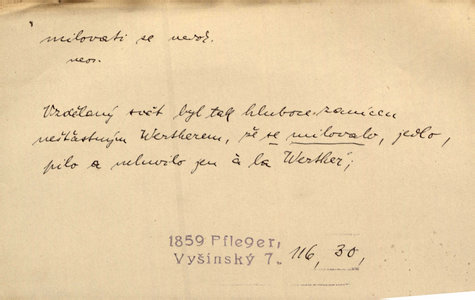 milovati se nedok.
neos.
Vzdělaný svět byl tak hluboce zanícen
nešťastným Wertherem, že se milovalo, jedlo,
pilo a mluvilo jen à la Werther;
1859 Pfleger,
Vyšínský 7. 116, 30,